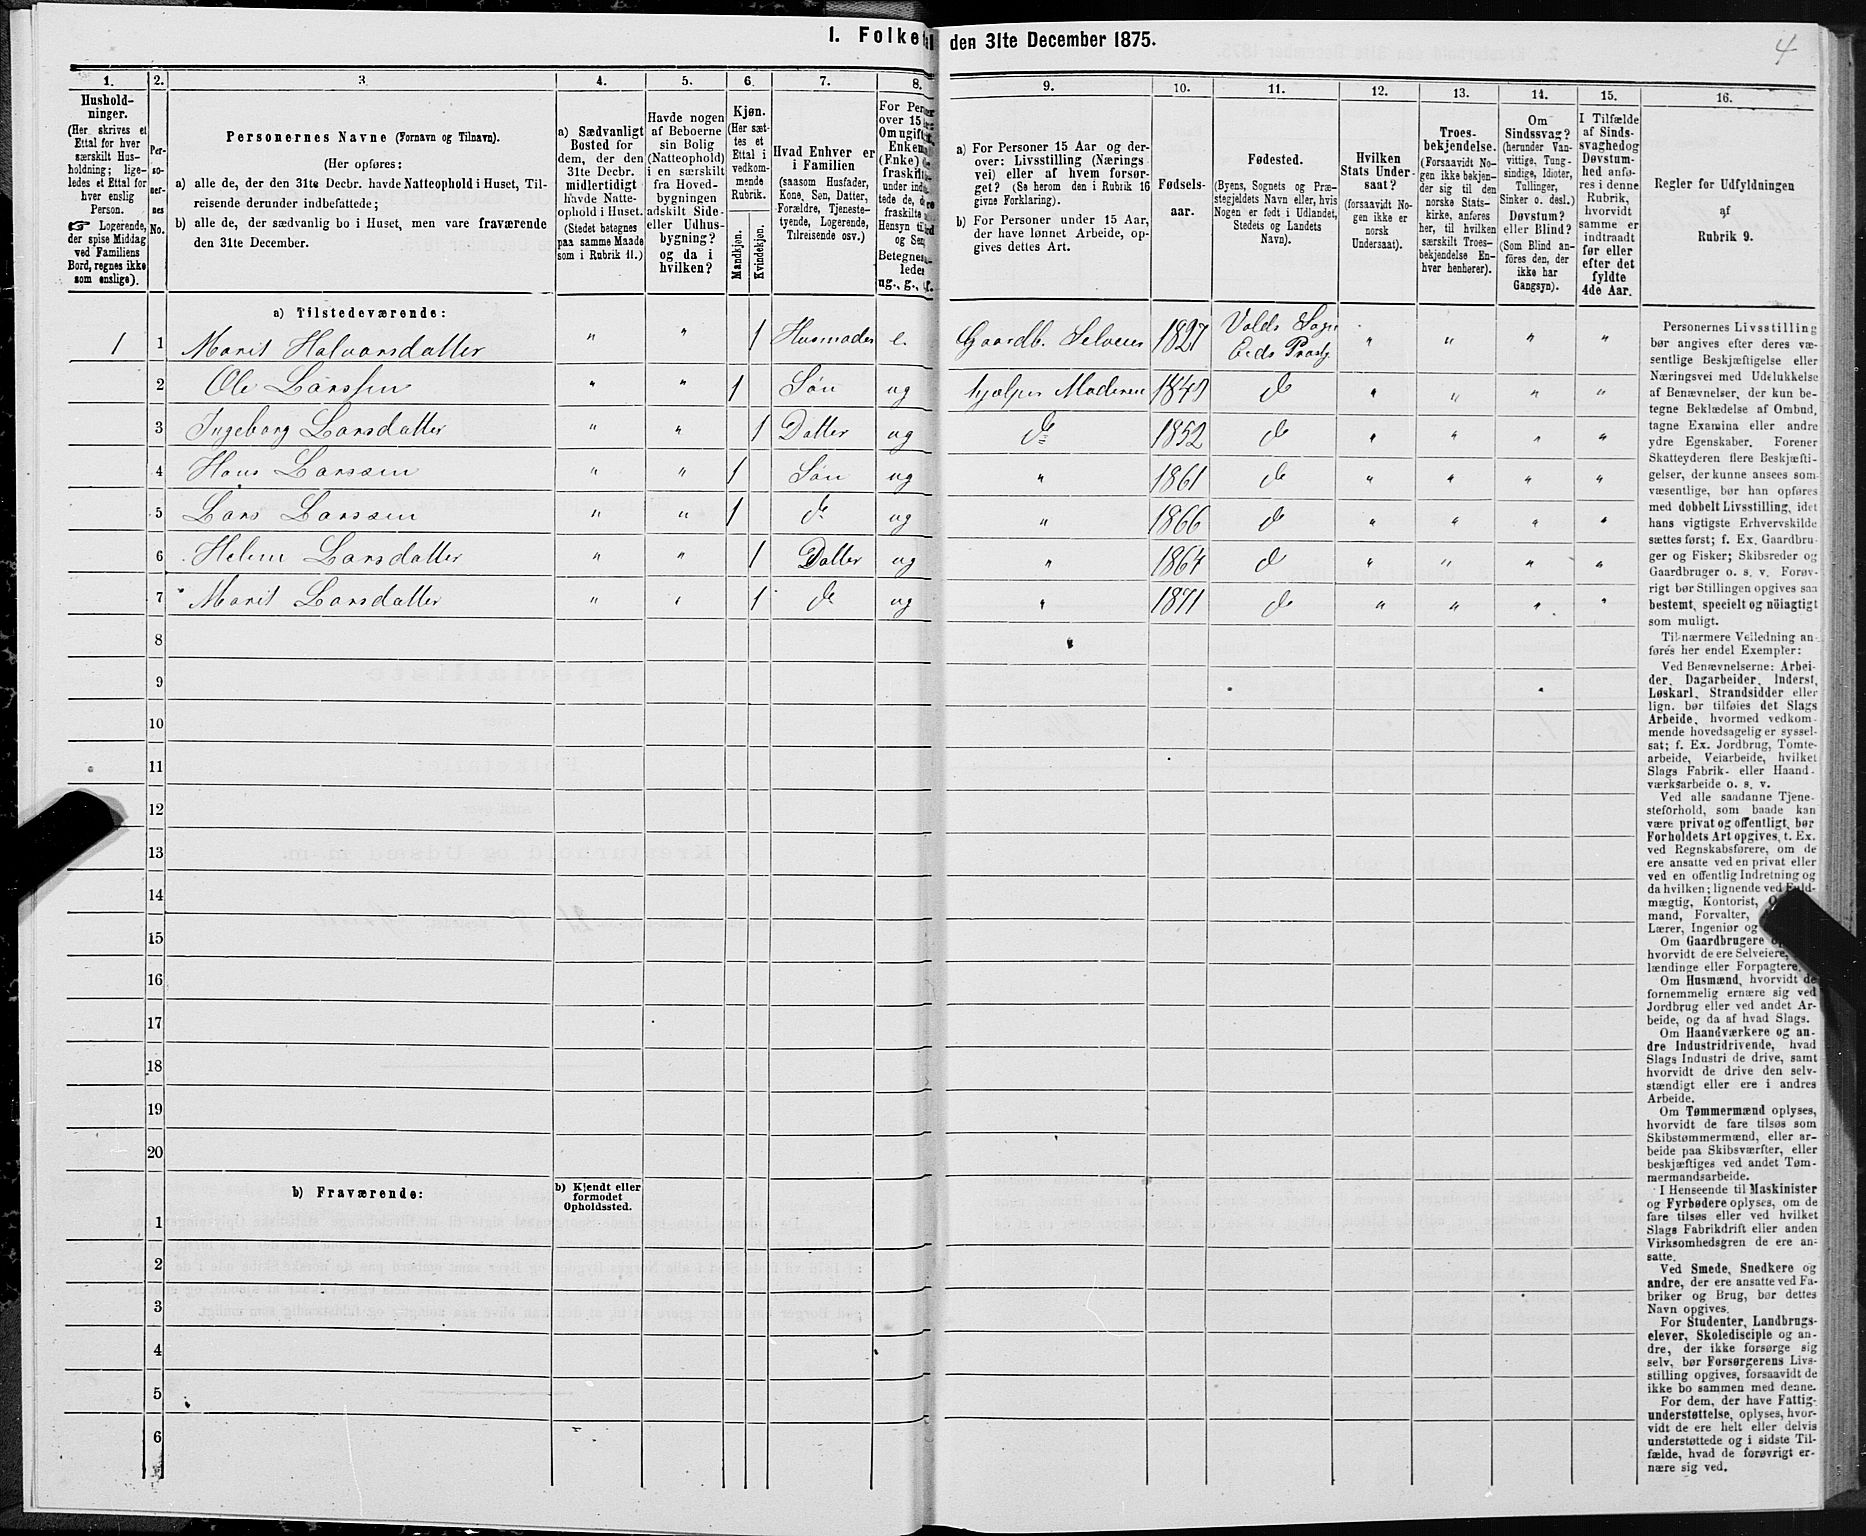 I. Folketal den 31te December 1875.
4
1.
Hushold-
ninger.
(Her skrives et
Ettal for hver
særskilt Hus-
holdning; lige-
ledes et Ettal for
hver enslig
Person.
☞ Logerende,
der spise Middag
ved Familiens
Bord, regnes ikke
som enslige).
2.
Per-
so-
ner-
nes
No.
3
Personernes Navne (Fornavn og Tilnavn).
(Her opføres:
a) alle de, der den 31te Decbr. havde Natteophold i Huset, Til-
reisende derunder indbefattede;
b) alle de, der sædvanlig bo i Huset, men vare fraværende
den 31te December.
4.
a) Sædvanligt
Bosted for
dem, der den
31te Decbr.
midlertidigt
havde Natte-
ophold i Huset.
(Stedet betegnes
paa samme Maade
som i Rubrik 11.)
5.
Havde nogen
af Beboerne
sin Bolig
(Natteophold)
i en særskilt
fra Hoved-
bygningen
adskilt Side-
eller Udhus-
bygning?
og da i
hvilken?
6.
Kjøn.
(Her sæt-
tes et
Ettal i
vedkom-
mende
Rubrik.
Mandkjøn.
Kvindekjøn.
7.
Hvad Enhver er
i Familien
(saasom Husfader,
Kone, Søn, Datter,
Forældre, Tjeneste-
tyende, Logerende,
Tilreisende osv.)
8.
For Per
over 15
Om ugift
Enkem
(Enke)
fraskilt
under indt
tede de,
fraskilte
Hensyn til
og Sen
Betegnes
ledes
ug., g.,
9.
a) For Personer 15 Aar og der-
over: Livsstilling (Nærings
vei) eller af hvem forsør-
get? (Se herom den i Rubrik 16
givne Forklaring).
b) For Personer under 15 Aar,
der have lønnet Arbeide, op-
gives dettes Art.
10.
Fødsels-
aar.
11.
Fødested.
(Byens, Sognets og Præ-
stegjeldets Navn eller, hvis
Nogen er født i Udlandet,
Stedets og Landets
Navn).
12.
Hvilken
Stats Under-
saat?
(forsaavidt No-
gen ikke er
norsk
Undersaat).
13.
Troes-
bekjendelse.
(Forsaavidt No-
gen ikke bekjen-
der sig til den
norske Stats-
kirke, anføres
her, til hvilken
særskilt Troes-
bekjendelse En-
hver henhører).
14.
Om
Sindssvag?
(herunder Van-
vittige, Tung-
sindige, Idioter,
Tullinger,
Sinker o. desl.)
Døvstum?
eller Blind?
(Som Blind an-
føres den, der
ikke har
Gangsyn).
15.
I Tilfælde
af Sinds-
svaghed og
Døvstum-
hed anfø-
res i denne
Rubrik,
hvorvidt
samme er
indtraadt
før eller
efter det
fyldte
4de Aar.
16.
Regler for Udfyldningen
af
Rubrik 9.
a) Tilstedeværende:
1 1 Marit Halvorsdatter " " 1 Husmoder e. Gaardb. Selveier 1827 Volds Sogn " " " "
2 Ole Larssen " " 1 Søn ug hjælper Moderen 1849 do " " " "
3 Ingeborg Larsdatter " " 1 Datter ug do 1852 do " " " "
4 Hans Larssen " " 1 Søn ug " 1861 do " " " "
5 Lars Larssen " " 1 do ug " 1866 do " " " "
6 Helene Larsdatter " " 1 Datter ug " 1864 do " " " "
7 Marit Larsdatter " " 1 do ug " 1871 do " " " "
8
9
10
11
12
13
14
15
16
17
18
19
20
b) Fraværende:
b) Kjendt eller
formodet
Opholdssted.
1
2
3
4
5
6
Personernes Livsstilling
bør angives efter deres væ-
sentlige Beskjæftigelse eller
Næringsvei med Udelukkelse
af Benævnelser, der kun be-
tegne Beklædelse af Ombud,
tagne Examina eller andre
ydre Egenskaber. Forener
Skatteyderen flere Beskjæfti-
gelser, der kunne ansees som
væsentlige, bør han opføres
med dobbelt Livsstilling, idet
hans vigtigste Erhvervskilde
sættes først; f. Ex. Gaardbru-
ger og Fisker; Skibsreder og
Gaardbruger o. s. v. Forøv-
rigt bør Stillingen opgives saa
bestemt, specielt og nöiagtigt
som muligt.
Til nærmere Veiledning an-
føres her endel Exempler:
Ved Benævnelserne: Arbei-
der, Dagarbeider, Inderst,
Løskarl, Strandsidder eller
lign. bør tilføies det Slags
Arbeide, hvormed vedkom-
mende hovedsagelig er syssel-
sat; f. Ex. Jordbrug, Tomte-
arbeide, Veiarbeide, hvilket
Slags Fabrik- eller Haand-
værksarbeide o. s. v.
Ved alle saadanne Tjene-
steforhold, som baade kan
være privat og offentligt, bør
Forholdets Art opgives, t. Ex.
ved Regnskabsførere, om de
ere ansatte ved en privat eller
ved en offentlig Indretning og
da hvilken; lignende ved Fuld-
mægtig, Kontorist,
mand, Forvalter,
Lærer, Ingeniør og
Om Gaardbrugere
hvorvidt de ere Selveiere,
lændinge eller Forpagtere.
Om Husmænd, hvorvidt de
fornemmelig ernære sig ved
Jordbrug eller ved andet Ar-
beide, og da af hvad Slags.
Om Haandværkere og an-
dre Industridrivende, hvad
Slags Industri de drive, samt
hvorvidt de drive den selv-
stændigt eller ere i andres
Arbeide.
Om Tømmermænd oplyses,
hvorvidt de fare tilsøs som
Skibstømmermænd, eller ar-
beide paa Skibsværfter, eller
beskjæftiges ved andet Tøm-
mermandsarbeide.
I Henseende til Maskinister
og Fyrbødere oplyses, om de
fare tilsøs eller ved hvilket
Slags Fabrikdrift eller anden
Virksomhedsgren de ere an-
satte.
Ved Smede, Snedkere og
andre, der ere ansatte ved Fa-
briker og Brug, bør dettes
Navn opgives.
For Studenter, Landbrugs-
elever, Skoledisciple og an-
dre, der ikke forsørge sig
selv, bør Forsørgerens Livs-
stilling opgives, forsaavidt de
ikke bo sammen med denne.
For dem, der have Fattig-
understøttelse, oplyses, hvor-
vidt de ere helt eller delvis
understøttede og i sidste Til-
fælde, hvad de forøvrigt er-
nære sig ved.